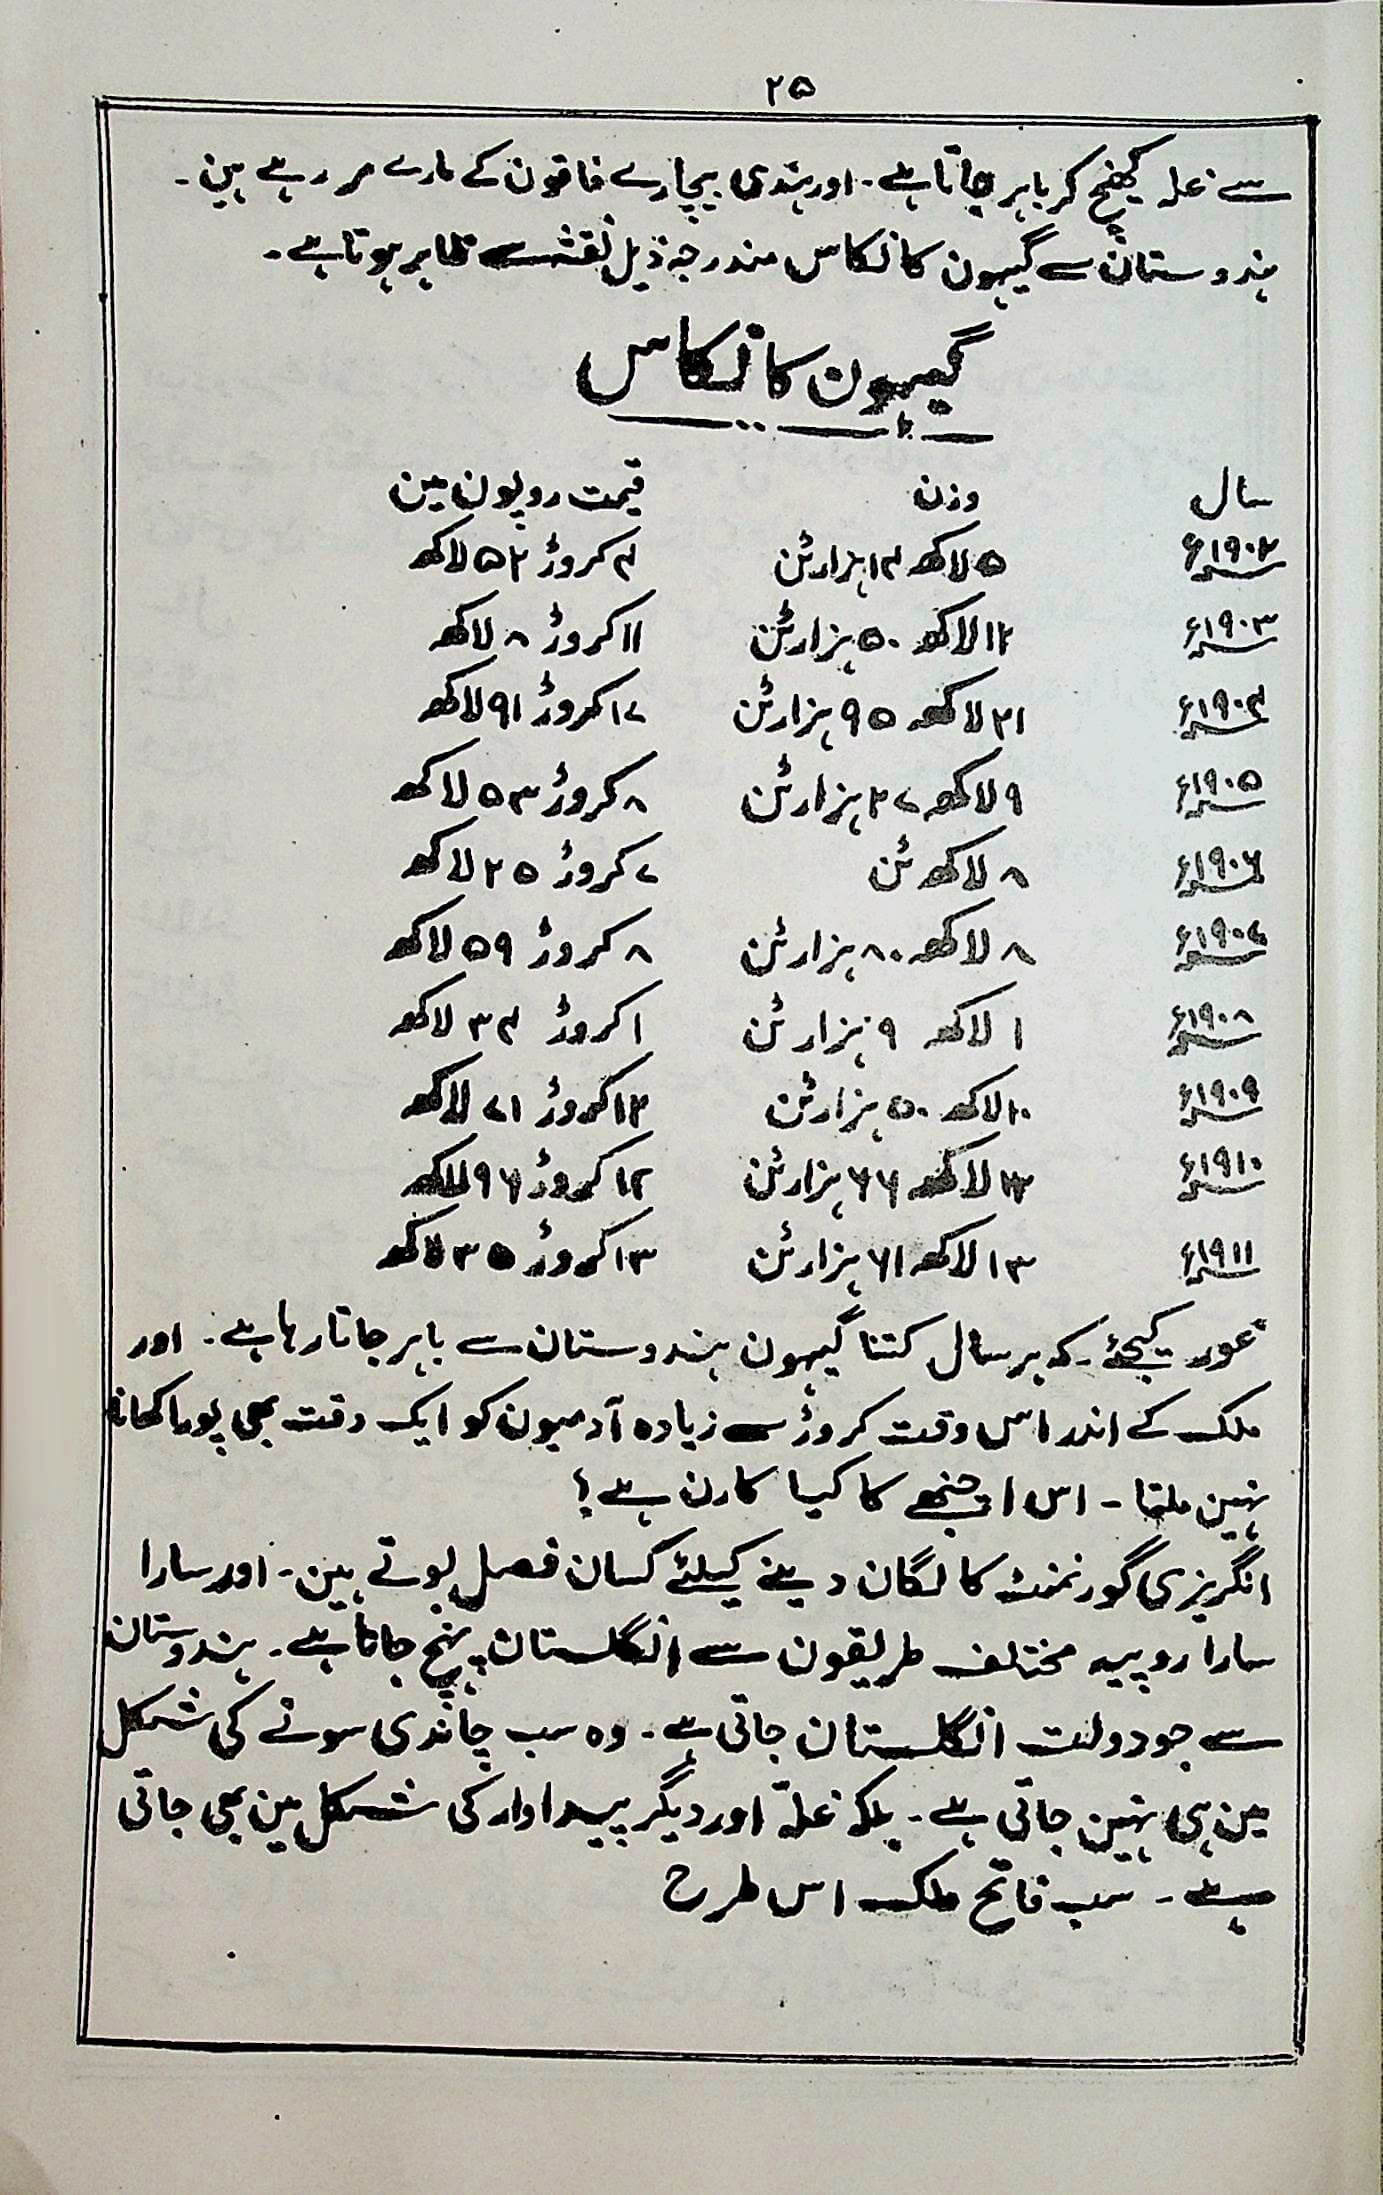 ۲۵
سے غلہ کھنچ کر باہر جاتا ہے۔ اور ہندی بیچارے فاقون کے مارے مر رہے ہین۔
ہندوستان سے گیہون کا نکاس مندرجہ ذیل نقشے سے ظاہر ہوتا ہے۔
گیہون کا نکاس
سال وزن قیمت روپون مین
۱۹۰۲ء ۵ لاکھ ۱۴ ہزار ٹن ۴ کروڑ ۵۲ لاکھ
۱۹۰۳ء ۱۲ لاکھ ۵۰ ہزار ٹن ۱۱ کروڑ ۸ لاکھ
۱۹۰۴ء ۲۱ لاکھ ۹۵ ہزار ٹن ۱۷ کروڑ ۹۱ لاکھ
۱۹۰۵ء ۹ لاکھ ۲۷ ہزار ٹن ۸ کروڑ ۵۳ لاکھ
۱۹۰۶ء ۸ لاکھ ٹن ۷ کروڑ ۲۵ لاکھ
۱۹۰۷ء ۸ لاکھ ۸۰ ہزار ٹن ۸ کروڑ ۵۹ لاکھ
۱۹۰۸ء ۱ لاکھ ۹ ہزار ٹن ۱ کروڑ ۳۴ لاکھ
۱۹۰۹ء ۱۰ لاکھ ۵۰ ہزار ٹن ۱۲ کروڑ ۷۱ لاکھ
۱۹۱۰ء لاکھ ۶۶ ہزار ٹن ۱۲ کروڑ ۹۶ لاکھ
۱۹۱۱ء ۱۳ لاکھ ۶۱ ہزار ٹن ۱۳ کروڑ ۳۵ لاکھ
غور کیجئے۔ کہ ہر سال کتنا گیہون ہندوستان سے باہر جاتا رہا ہے۔ اور
ملک کے اندر اس وقت کروڑ سے زیادہ آدمیون کو ایک وقت بھی پورا کھانا
نہین ملتا۔ اس اچنبھے کا کیا کارن ہے؟
انگریزی گورنمنٹ کا لگان دینے کیلئے کسان فصل بوتے ہین۔ اور سارا
سارا روپیہ مختلف طریقون سے انگلستان پہنچ جاتا ہے۔ ہندوستان
سے جو دولت انگلستان جاتی ہے۔ وہ سب چاندی سونے کی شکل
مین ہی نہین جاتی ہے۔ بلکہ غلّہ اور دیگر پیداوار کی شکل مین بھی جاتی
ہے۔ سب فاتح ملک اس طرح